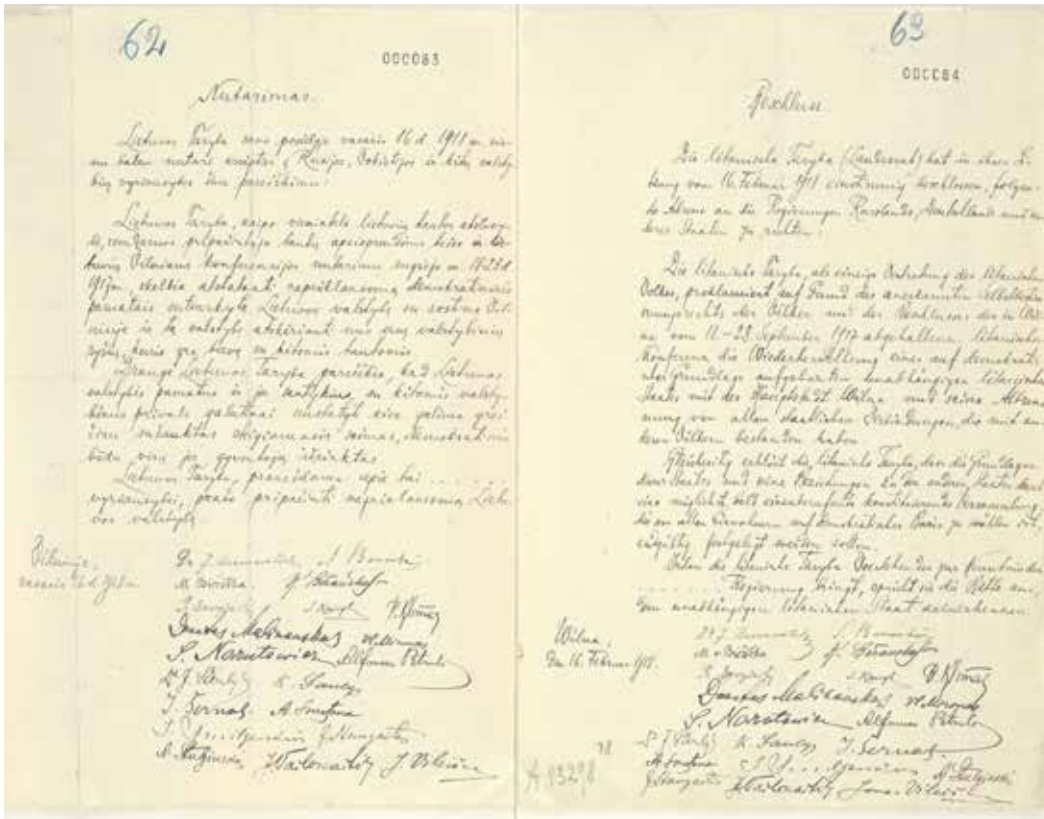 62
000063
Nutarimas.
Lietuvos Taryba savo posėdyje vasario 16 d. 1918 m. vie-
nu balsu nutarė kreiptis į Rusijos, Vokietijos ir kitų valsty-
bių vyriausybes šiuo pareiškimu:
Lietuvos Taryba, kaipo vienintelė lietuvių tautos atstovy-
bė, remdamos pripažintąja tautų apsisprendimo teise ir lie-
tuvių Vilniaus konferencijos nutarimu rugsėjo m. 18-23 d.
1917 m., skelbia atstatanti nepriklausomą demokratiniais
pamatais sutvarkytą Lietuvos valstybę su sostine Vil-
niuje ir tą valstybę atskirianti nuo visų valstybinių
ryšių, kurie yra buvę su kitomis tautomis.
Drauge Lietuvos Taryba pareiškia, kad Lietuvos
valstybės pamatus ir jos santykius su kitomis valsty-
bėmis privalo galutinai nustatyti kiek galima grei-
čiau sušauktas steigiamasis seimas, demokratiniu
būdu visų jos gyventojų išrinktas.
Lietuvos Taryba, pranešdama apie tai ........
vyriausybei, prašo pripažinti nepriklausomą Lietu-
vos valstybę.
Vilniuje,
vasario 16 d. 1918 m.
Donatas Malinauskas
S. Narutowicz Alfonsas Petrulis
K. Šaulys
A. Smetona
63
000064
Beschluss
Die litauische Taryba (Landesrat) hat in ihrer Si-
tzung vom 16. Februar 1918 einstimmig beschlossen, folgen-
an die Regierungen Russlands, Deutschlands und an-
derer Staaten zu richten:
Die litauische Taryba, als einzige Vertretung des litauischen
Volkes, proklamiert auf Grund des anerkannten Selbstbestim-
mungsrechts der Völker und des Beschlusses der in Wil-
na vom 18.-23. September 1917 abgehaltenen litauischen
Konferenz die Wiederherstellung eines auf demokrati-
scher Grundlage aufgebauten unabhängigen litauischen
Staates mit der Hauptstadt Wilna und seine Abtren-
nung von allen staatlichen Verbindungen, die mit an-
deren Völkern bestanden haben.
Gleichzeitig erklärt die litauische Taryba, dass die Grundlagen
dieses Staates und seine Beziehungen zu den anderen Staaten durch
eine möglichst bald einzuberufende konstituierende Versammlung,
die von allen Einwohnern auf demokratischer Basis zu wählen ist,
endgültig festgelegt werden sollen.
Indem die litauische Taryba Beschluss zur Kenntnis der
........ Regierung bringt, spricht sie die Bitte aus,
den unabhängigen litauischen Staat anzuerkennen.
Wilna,
den 16. Februar 1918.
Donatas Malinauskas
S. Narutowicz Alfonsas Petrulis
K. Šaulys
A. Smetona
A 13298